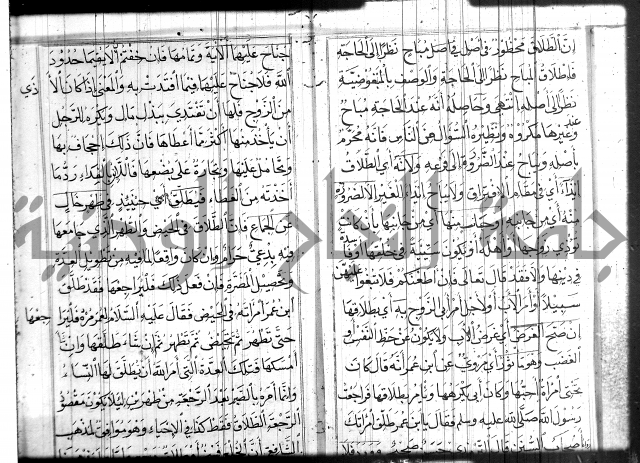 ان الطلاق محظور في اصل في فاصل مباح نظرا الى الحاجة
فاطلاق المباح نظرا الى الحاجة والوصف بالمبغوضية
نظرا الى اصله انتهى وحاصله انه عند الحاجة مباح
وعند غيرها مكروه ونظيره السؤال من الناس فانه محرم
باصله ويباح عند الضرورة الى نوعه ولانه اي الطلاق
ايذاء اي في مقام الافتراق ولا يباح ايذاء الغير الا لضرورة
منه اي من جانبه وجناية منها اي من جانبها بان
تؤذي زوجها واهله او تكون سيئة في خلقها او فاسدة
في دينها والا فقد قال تعالى فان اطعنكم فلا تبغوا عليهن
سبيلا وامر الاب ولاجل امر ابي الزوج به اي بطلاقها
ان صح الغرض اي غرض الاب ولا يكون عن حظ النفس او
الغضب وهو ماثور اي مروي عن ابن عمر انه قال كانت
تحتي امرأة احبها وكان ابي يكرهها ويامر بطلاقها فراجعت
رسول الله صلى الله عليه وسلم فقال يا ابن عمر طلق امرأتك
جناح عليهما الآية وتمامها فان خفتم الا يقيما حدود
الله فلا جناح عليهما فيما افتدت به والمعنى اذا كان الاذى
من الزوج فلها ان تفتدي ببذل مال ويكره للرجل
ان يأخذ منها اكثر مما اعطاها فان ذلك اجحاف بها
وتحامل عليها وتجارة على بضعها فاللائق بالفداء رد ما
اخذته من العطاء فيطلق اي حينئذ في طهر خال
عن الجماع فان الطلاق في الحيض والطهر الذي جامعها
فيه بدعي حرام وان كان واقعا لما فيه من تطويل العدة
وتحصيل المضرة فان فعل ذلك فليراجعها فقد طلق
ابن عمر امرأته في الحيض فقال عليه السلام لعمر مره فليراجعها
حتى تطهر ثم تحيض ثم تطهر ثم ان شاء طلقها وان شاء
امسكها فتلك العدة التي امر الله ان يطلق لها النساء
وانما امره بالصبر بعد الرجعة من طهرين لئلا يكون مقصود
الرجعة الطلاق فقط كذا في الاحياء وهو موافق لمذهب